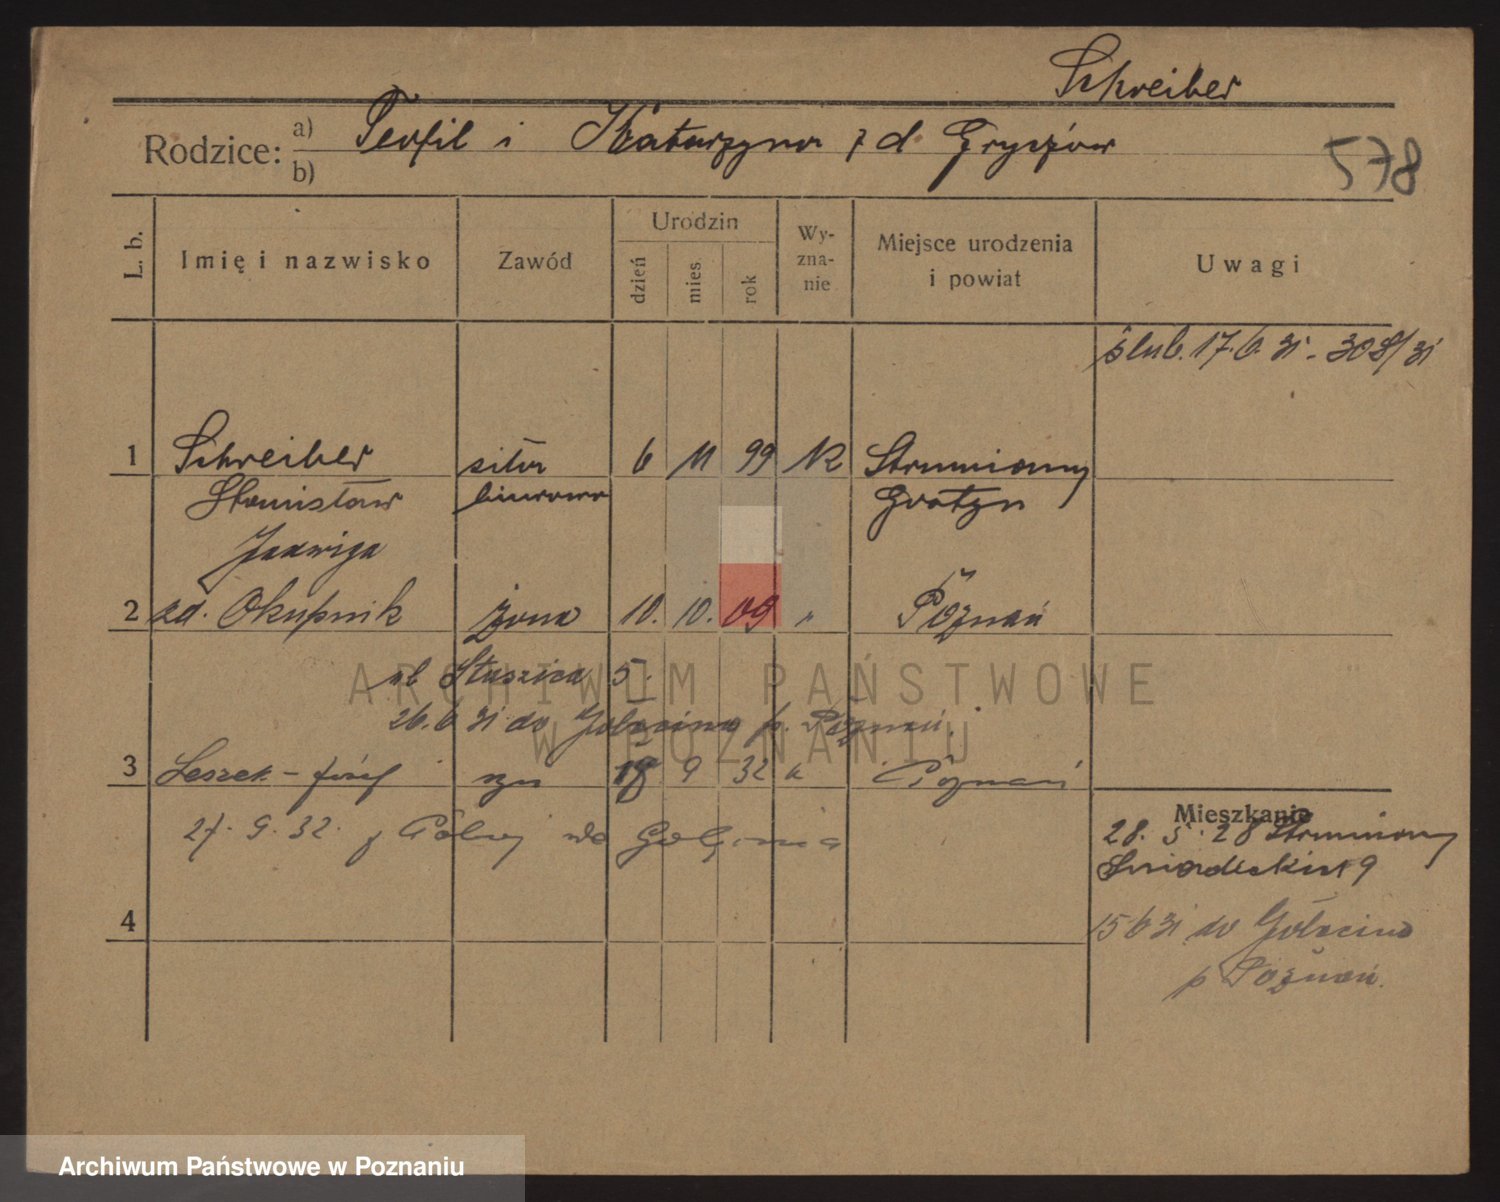 Schreiber
Rodzice: a) Teofil i Katarzyna z d. Gryzów
b)
578
L. b.
Imię i nazwisko
Zawód
Urodzin
dzień
mies.
rok
Wy-
zna-
nie
Miejsce urodzenia
i powiat
Uwagi
ślub. 17.6.31 - 308/31
1 Schreiber siła 6 11 99 K Strumiany
Stanisław biurowa Gostyn
Jadwiga
2 zd. Okupnik żona 10. 10. 09 " Poznań
ul Staszica 5.
26.6 31 do Golęcina p. Poznań.
3 Leszek - Józef syn 18 9 32 " Poznań
27. 9. 32. z Polnej do Golęcina
Mieszkanie
28. 5. 28 Strumiany
Śniadeckich 9
15 6 31 do Golęcina
p Poznań.
4
ARCHIWUM PAŃSTWOWE
W POZNANIU
Archiwum Państwowe w Poznaniu